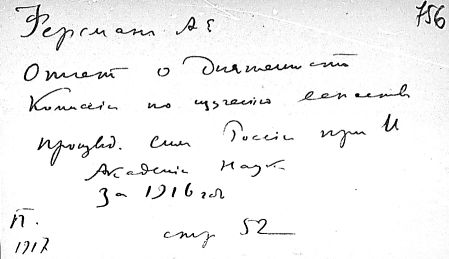 Ферсман А Е
756
Отчет о Деятельности
Комиссіи по изученію естеств
произвд. сил Россіи при И
Академіи Наук
За 1916 год
П.
1917
стр 52